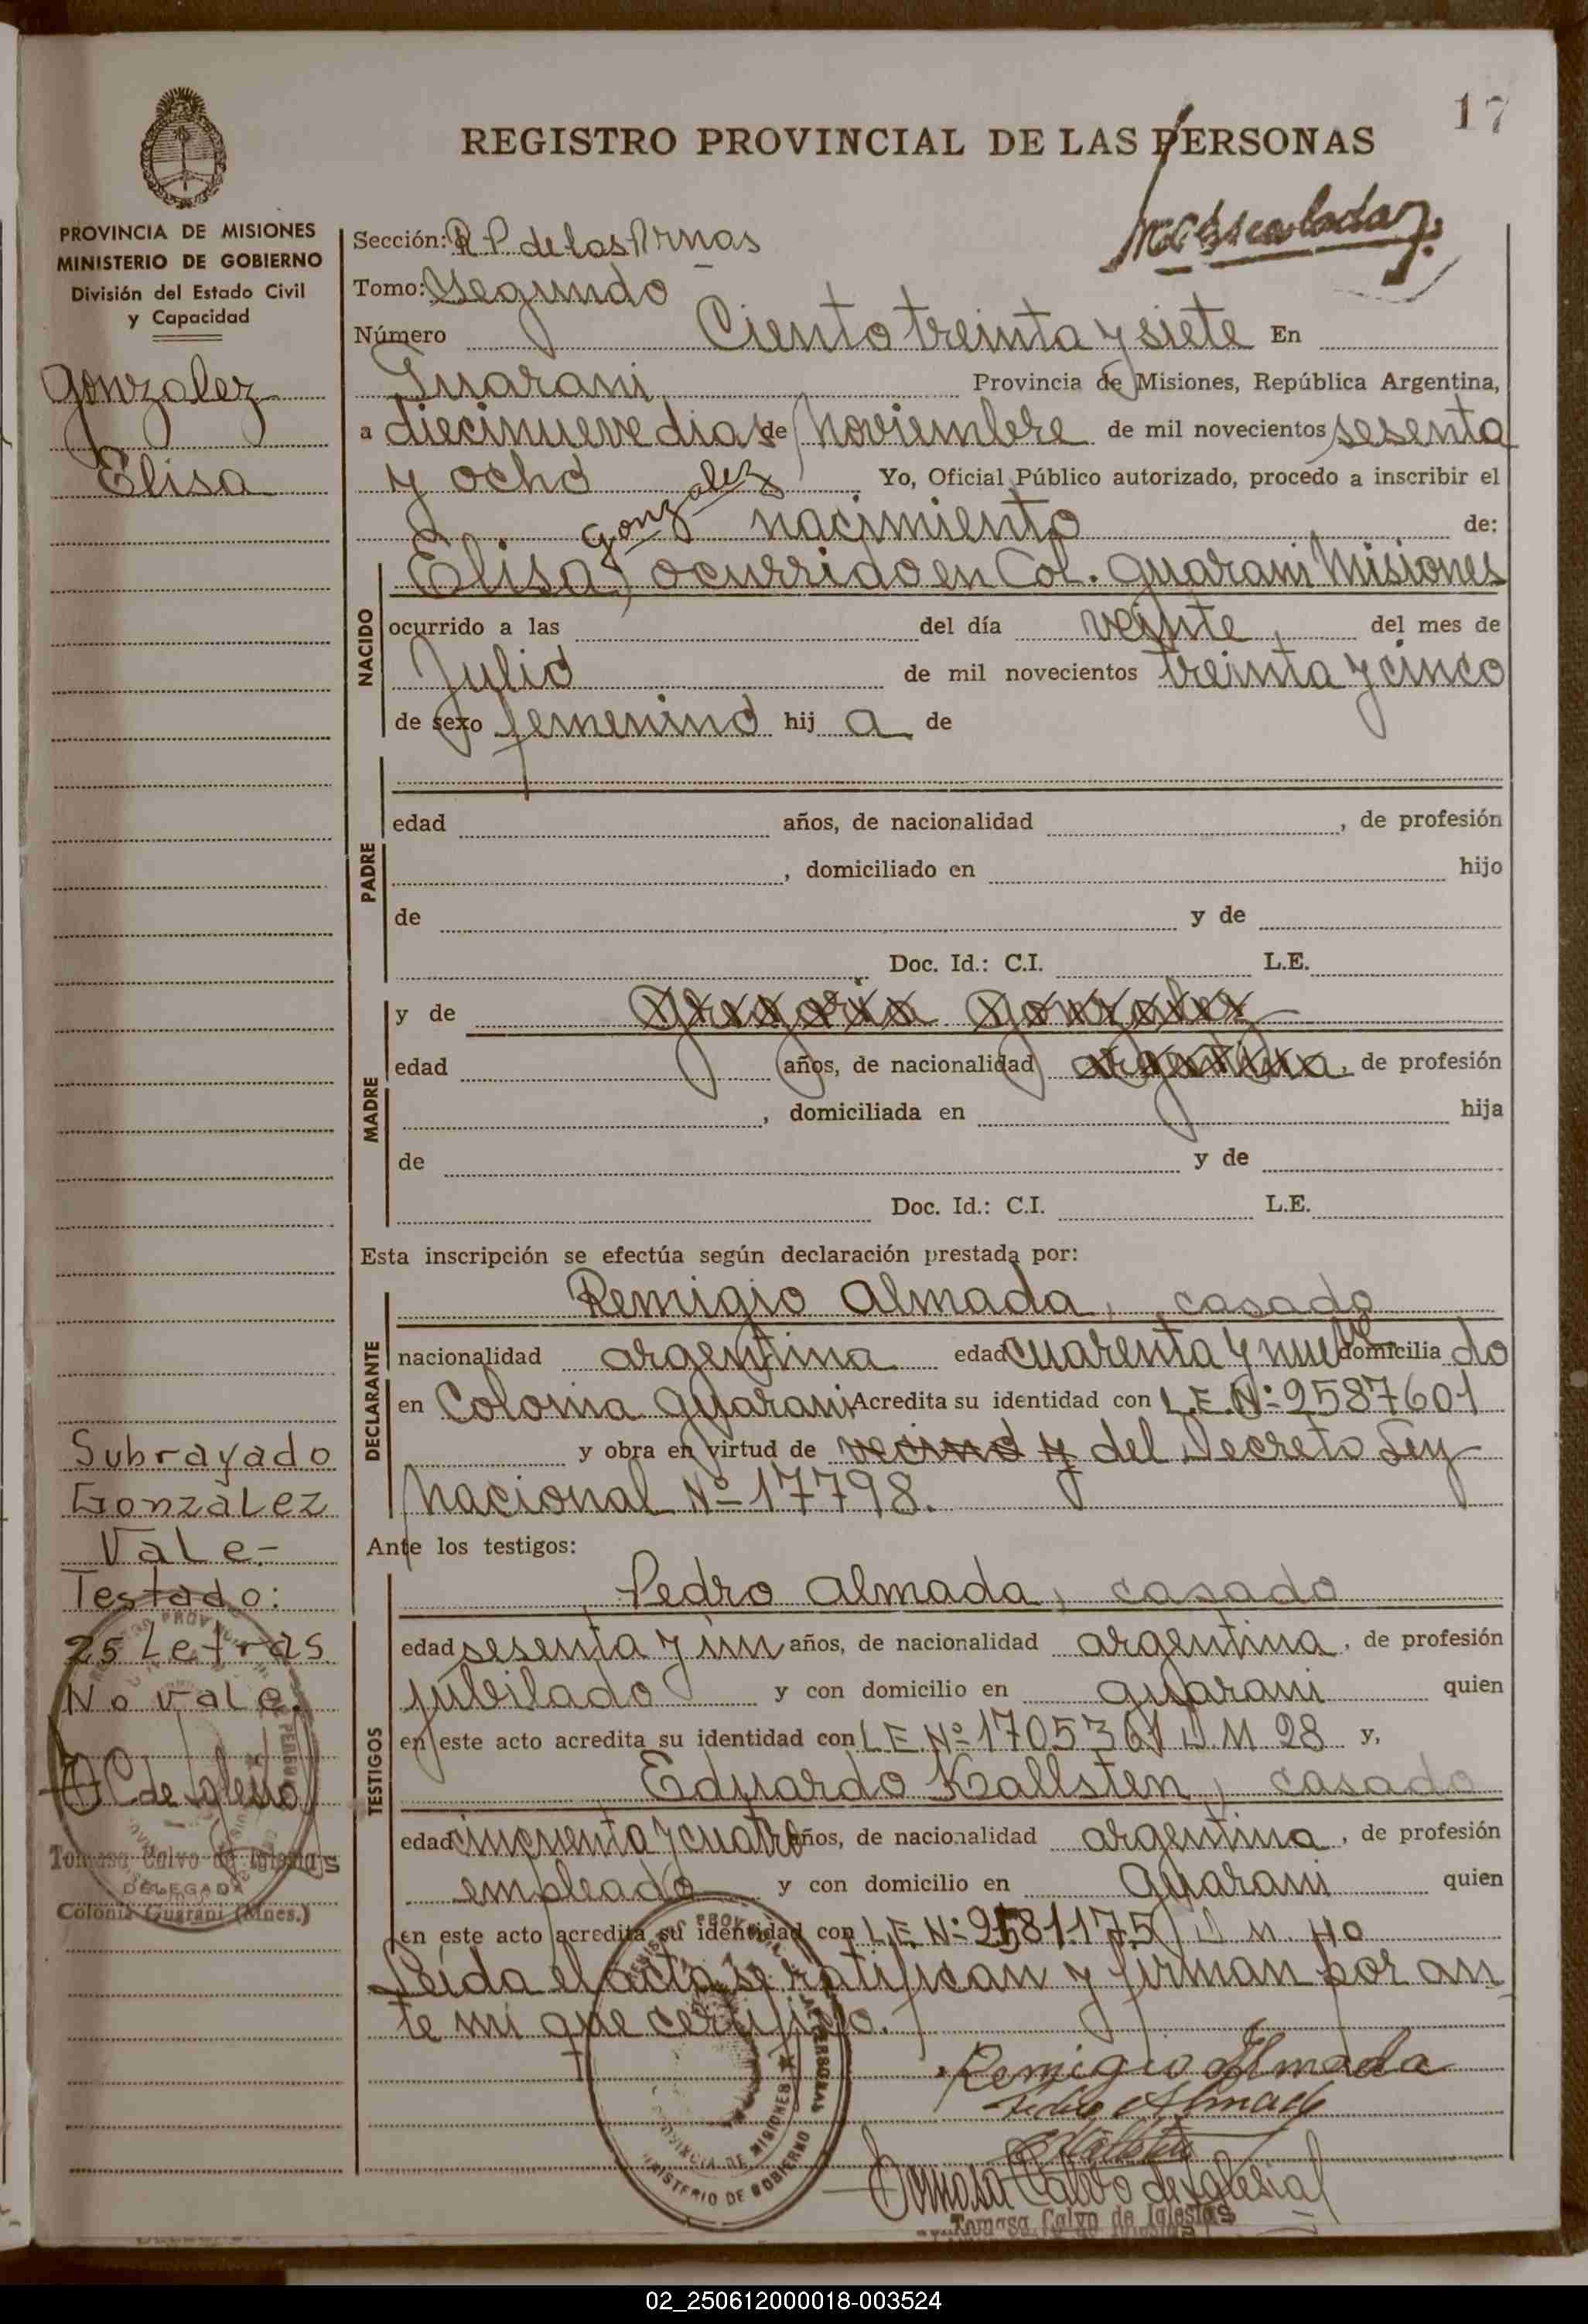 17
REGISTRO PROVINCIAL DE LAS PERSONAS
PROVINCIA DE MISIONES
MINISTERIO DE GOBIERNO
División del Estado Civil
y Capacidad
Gonzalez
Elisa
Sección: R P. de las Prnas
Tomo: Segundo
Número Ciento treinta y siete En
Guarani Provincia de Misiones, República Argentina,
a diecinueve dias de Noviembre de mil novecientos sesenta
y ocho Yo, Oficial Público autorizado, procedo a inscribir el
nacimiento de:
Gonzalez
Elisa, ocurrido en Col. Guarani Misiones
NACIDO
ocurrido a las del día veinte, del mes de
Julio de mil novecientos treinta y cinco
de sexo femenino hij a de
PADRE
edad años, de nacionalidad , de profesión
, domiciliado en hijo
de y de
Doc. Id.: C.I. L.E.
MADRE
y de Gregoria Gonzalez
edad años, de nacionalidad argentina, de profesión
, domiciliada en hija
de y de
Doc. Id.: C.I. L.E.
Esta inscripción se efectúa según declaración prestada por:
DECLARANTE
Remigio Almada, casado
nacionalidad argentina edad cuarenta y nueve domicilia do
en Colonia Guarani Acredita su identidad con L.E. Nº 2587601
y obra en virtud de vecino y del Decreto Ley
Nacional Nº 17798.
Ante los testigos:
TESTIGOS
Pedro Almada, casado
edad sesenta y un años, de nacionalidad argentina, de profesión
jubilado y con domicilio en Guarani quien
en este acto acredita su identidad con L E. Nº 1705361 D M 28 y,
Eduardo Kallsten, casado
edad cincuenta y cuatro años, de nacionalidad argentina, de profesión
empleado y con domicilio en Guarani quien
en este acto acredita su identidad con L.E. Nº D M 40
Leida el acta se ratifican y firman por an
te mi que certifico.
Remigio Almada
Pedro Almada
Tomasa Calvo de Iglesias
Tomasa Calvo de Iglesias
Subrayado
Gonzalez
Vale-
Testado:
25 Letras
No vale.
T C de Iglesias
Tomasa Calvo de Iglesias
DELEGADA
Colonia Guarani (Mnes.)
PROVINCIA DE MISIONES
MINISTERIO DE GOBIERNO
02_250612000018-003524